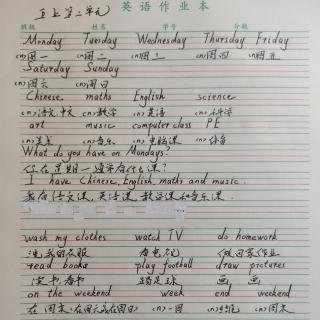 五上第二单元 英语作业本
班级 姓名 学号 分数
Monday Tuesday Wednesday Thursday Friday
(n)周一 (n)周二 (n)周三 (n)周四 (n)周五
Saturday Sunday
(n)周六 (n)周日
Chinese maths English science
(n)语文,中文 (n)数学 (n)英语 (n)科学
art music computer class PE
(n)美术 (n)音乐 (n)电脑课 (n)体育
What do you have on Mondays?
你在星期一通常有什么课?
I have Chinese, English, maths and music.
我有语文课,英语课,数学课和音乐课.
wash my clothes watch TV do homework
洗我的衣服 看电视 做家庭作业
read books play football draw pictures
读书 看书 踢足球 画画
on the weekend week end weekend
在周末(在周六或在周日) (n)一周 (n)周末